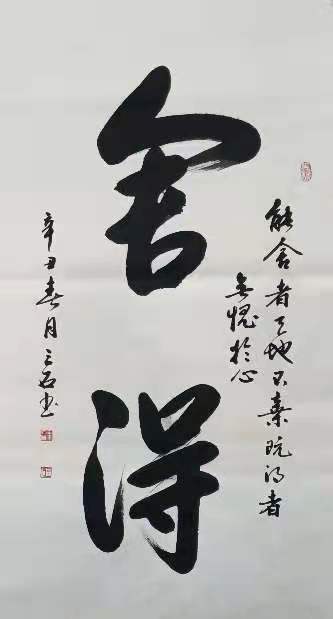 能舍者天地不弃既得者
无愧於心
舍得
辛丑春月三石书